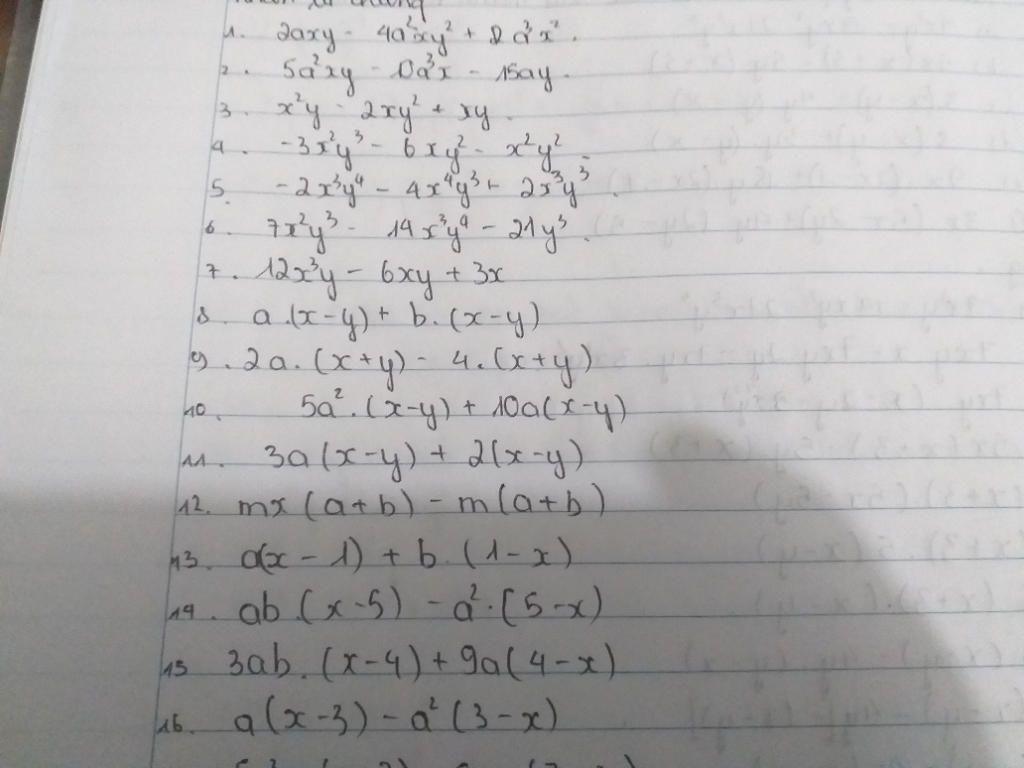 1. 2axy - 4a²xy² + 2a³x².
2. 5a²xy - 10a³x - 15ay.
3. x²y - 2xy² + xy.
4. -3x²y³ - 6xy² - x²y².
5. -2x³y⁴ - 4x⁴y³ + 2x³y³.
6. 7x²y³ - 14x³y⁴ - 21y³.
7. 12x³y - 6xy + 3x
8. a.(x-y) + b.(x-y)
9. 2a.(x+y) - 4.(x+y)
10. 5a².(x-y) + 10a(x-y)
11. 3a(x-y) + 2(x-y)
12. mx(a+b) - m(a+b)
13. a(x-1) + b.(1-x)
14. ab.(x-5) - a².(5-x)
15 3ab.(x-4) + 9a(4-x)
16. a(x-3) - a²(3-x)